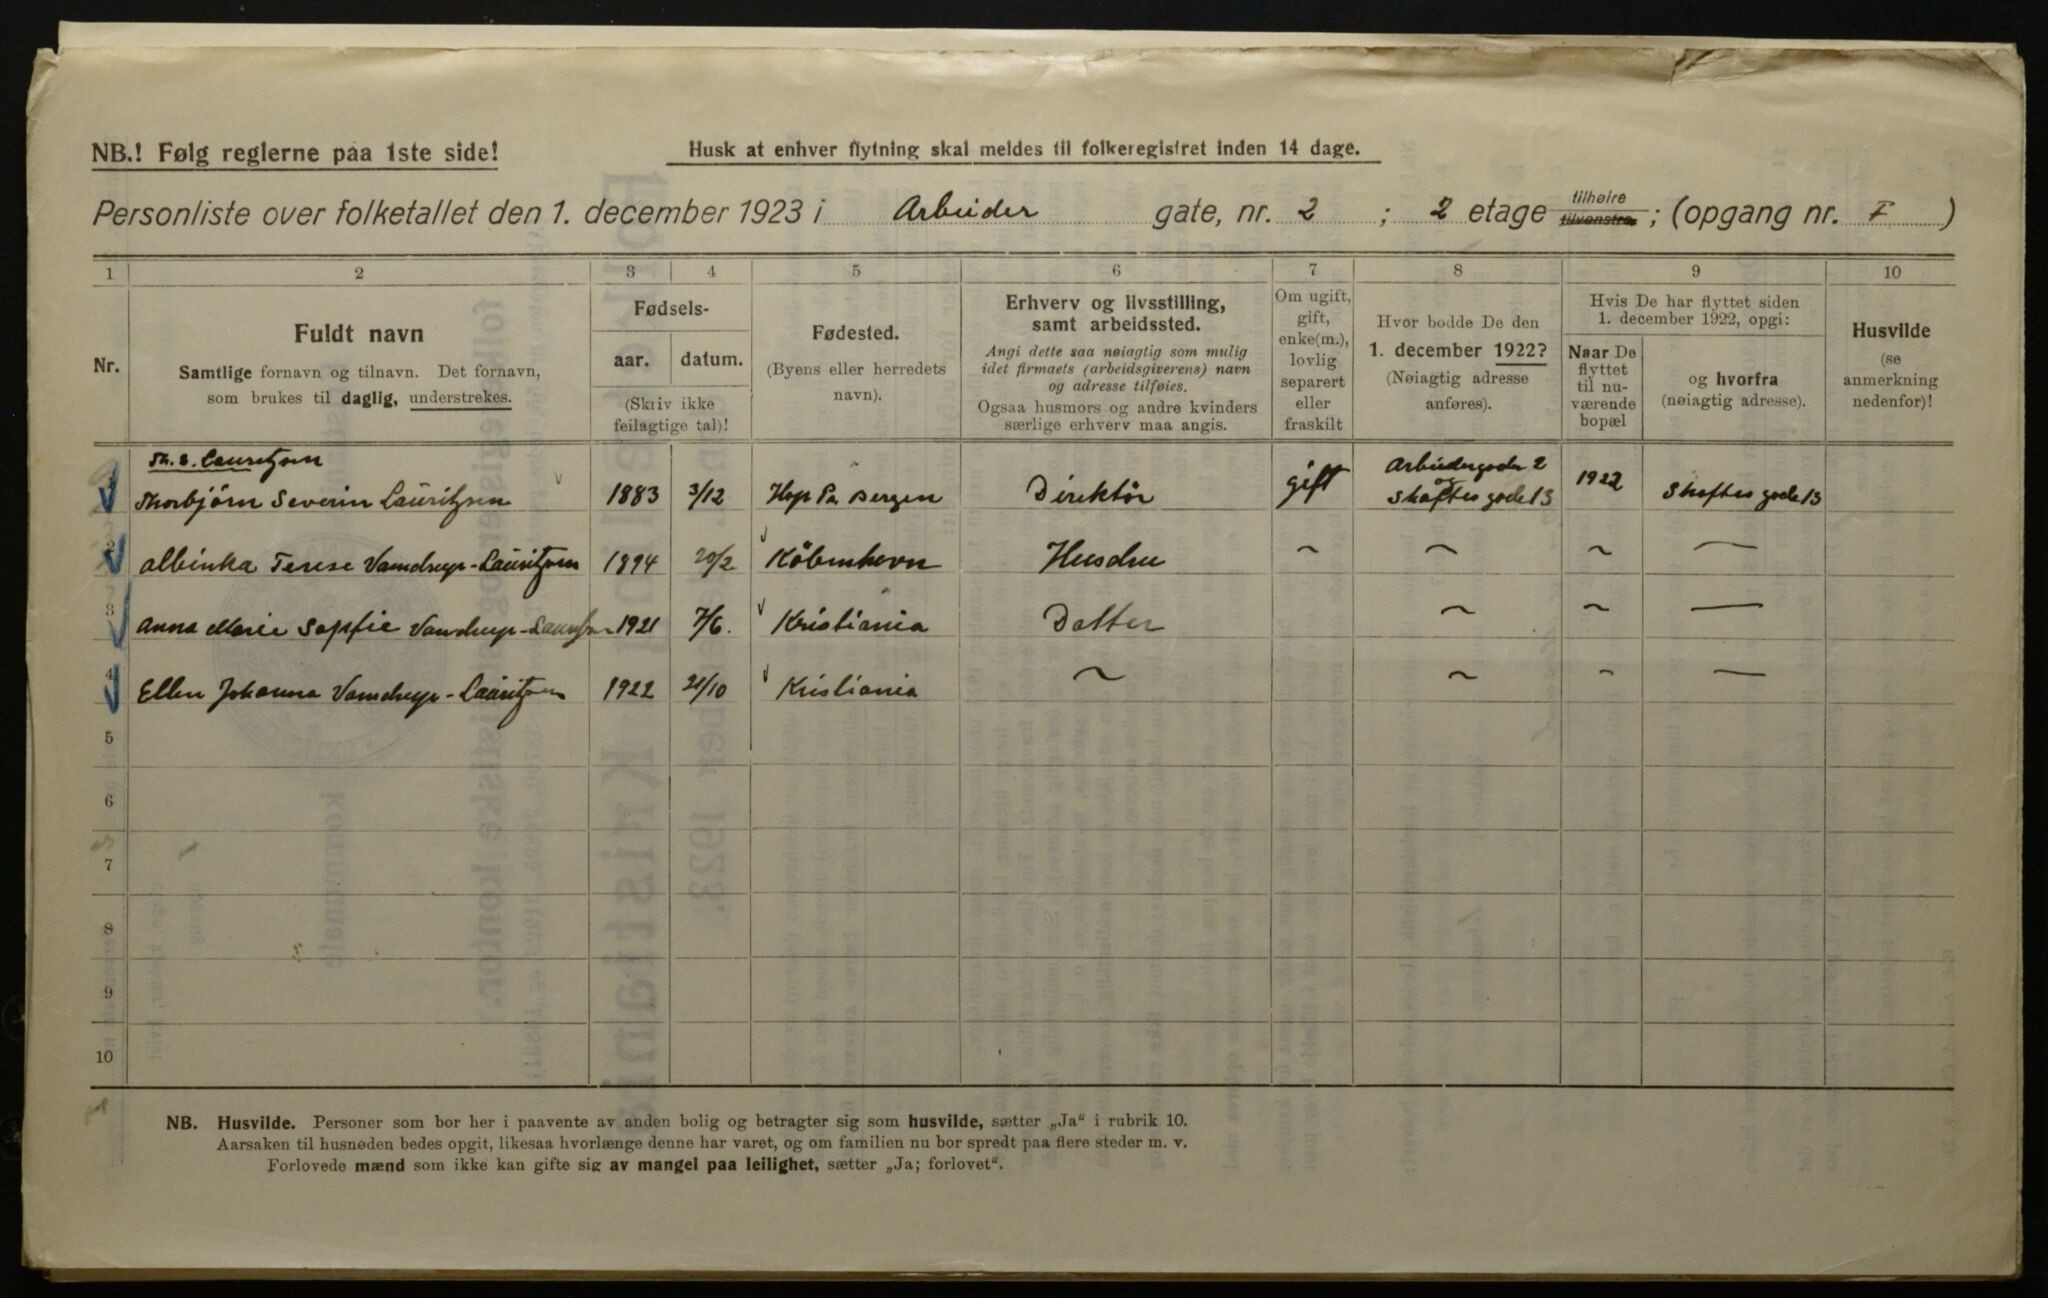 NB.! Følg reglerne paa 1ste side!
Husk at enhver flytning skal meldes til folkeregistret inden 14 dage.
Personliste over folketallet den 1. december 1923 i Arbeider gate, nr. 2 ; 2 etage tilhøire tilvenstre ; (opgang nr. I )
1 2 3 4 5 6 7 8 9 10
Nr.
Fuldt navn
Samtlige fornavn og tilnavn. Det fornavn,
som brukes til daglig, understrekes.
Fødsels-
aar. datum.
(Skriv ikke
feilagtige tal)!
Fødested.
(Byens eller herredets
navn).
Erhverv og livsstilling,
samt arbeidssted.
Angi dette saa nøiagtig som mulig
idet firmaets (arbeidsgiverens) navn
og adresse tilføies.
Ogsaa husmors og andre kvinders
særlige erhverv maa angis.
Om ugift,
gift,
enke(m.),
lovlig
separert
eller
fraskilt
Hvor bodde De den
1. december 1922?
(Nøiagtig adresse
anføres).
Hvis De har flyttet siden
1. december 1922, opgi:
Naar De
flyttet
til nu-
værende
bopæl
og hvorfra
(nøiagtig adresse).
Husvilde
(se
anmerkning
nedenfor)!
Th. S. Lauritzen
1 Thorbjørn Severin Lauritzen 1883 3/12 Hop Pr Bergen Direktør gift Arbeidergaden 2 og Skoftes gade 13 1922 Skoftes gade 13
2 Albinka Terese Vamdrup-Lauritzen 1894 20/2 København Husfru ~ ~ ~ —
3 Anna Marie Sopfie Vamdrup-Lauritzen 1921 7/6. Kristiania Datter ~ ~ —
4 Ellen Johanna Vamdrup-Lauritzen 1922 21/10 Kristiania ~ ~ ~ —
5
6
7
8
9
10
NB. Husvilde. Personer som bor her i paavente av anden bolig og betragter sig som husvilde, sætter „Ja“ i rubrik 10.
Aarsaken til husnøden bedes opgit, likesaa hvorlænge denne har varet, og om familien nu bor spredt paa flere steder m. v.
Forlovede mænd som ikke kan gifte sig av mangel paa leilighet, sætter „Ja; forlovet“.